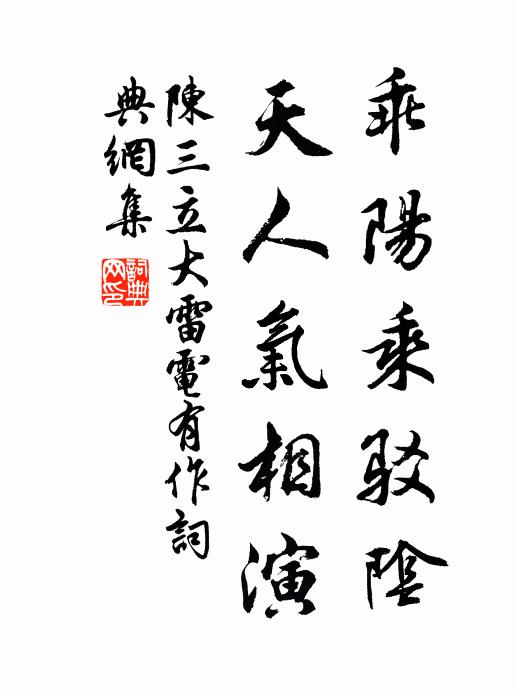 乖陽乘駁陰
天人氣相演
陳三立大雷電有作詞
典網集
詞典网印